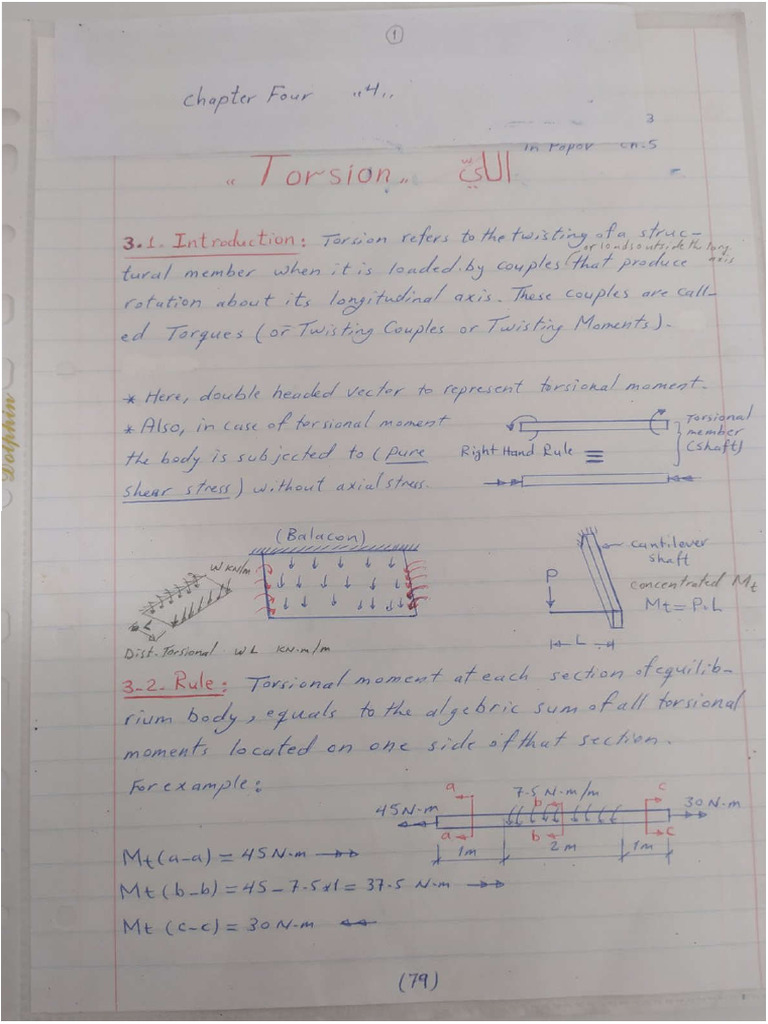 1
Chapter Four "4"
3
in Paper ch.5
"Torsion" الليّ
3.1. Introduction: Torsion refers to the twisting of a struc-
or loads outside the long axis
tural member when it is loaded by couples (that produce
rotation about its longitudinal axis. These couples are call-
ed Torques (or Twisting Couples or Twisting Moments).
* Here, double headed vector to represent torsional moment.
* Also, in case of torsional moment
the body is subjected to (pure
shear stress) without axial stress.
Right Hand Rule ≡
Torsional
member
(shaft)
(Balacon)
W KN/m
L
Dist. Torsional WL KN.m/m
P
L
cantilever
shaft
concentrated Mt
Mt = P.L
3-2- Rule: Torsional moment at each section of equilib-
rium body, equals to the algebric sum of all torsional
moments located on one side of that section.
For example:
45 N.m
a
a
7.5 N.m/m
b
b
c
c
30 N.m
1m
2m
1m
Mt (a-a) = 45 N.m
Mt (b-b) = 45 - 7.5*1 = 37.5 N.m
Mt (c-c) = 30 N.m
(79)
Dolphin